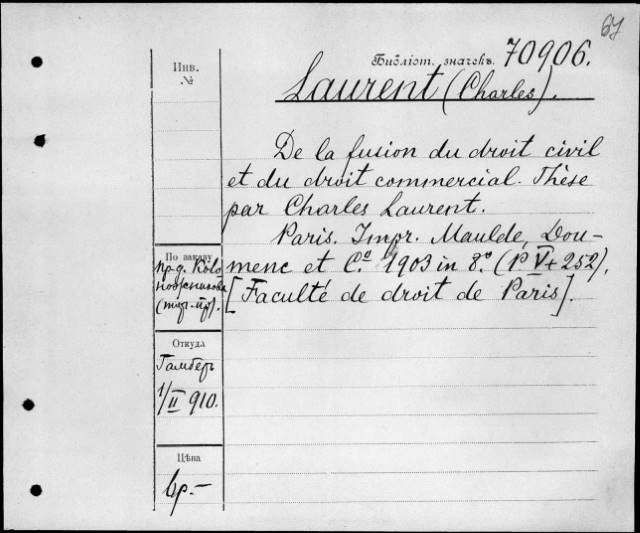 67
Библіот. значекъ. 70906.
Инв.
№
Laurent (Charles).
De la fusion du droit civil
et du droit commercial. Thèse
par Charles Laurent.
Paris. Impr. Maulde, Dou-
menc et C.º 1903 in 8.º (P V + 252).
[Faculté de droit de Paris].
По заказу
пр-д.
Откуда
Гамберъ
1/II 910.
Цѣна
6р.-